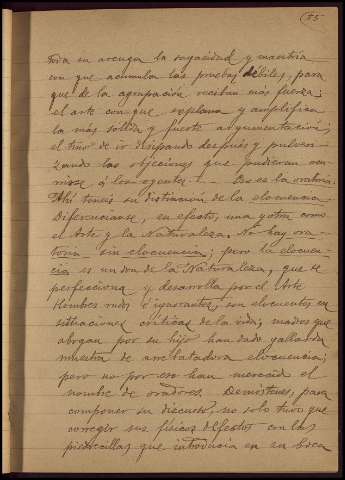 (85
toda su arenga la sagacidad y maestria
con que acumula las pruebas débiles, para
que de la agrupación reciban más fuerza;
el arte con que explana y amplifica
la más sólida y fuerte argumentación;
el tino de ir disipando después y pulveri-
zando las objeciones que pudieran ocu-
rrirse á los oyentes — Eso es la oratoria.
Ahí tenéis su distinción de la elocuencia
Diferencianse, en efecto, una y otra como
el Arte y la Naturaleza. No hay ora-
toria sin elocuencia; pero la elocuen-
cia es un don de la Naturaleza, que se
perfecciona y desarrolla por el Arte
Hombres rudos é ignorantes, son elocuentes en
situaciones críticas de la vida; madres que
abogan por su hijo han dado gallarda
muestra de arrebatadora elocuencia;
pero no por eso han merecido el
nombre de oradores. Demóstenes, para
componer su discurso, no solo tuvo que
corregir sus físicos defectos con las
piedrecillas que introducía en su boca